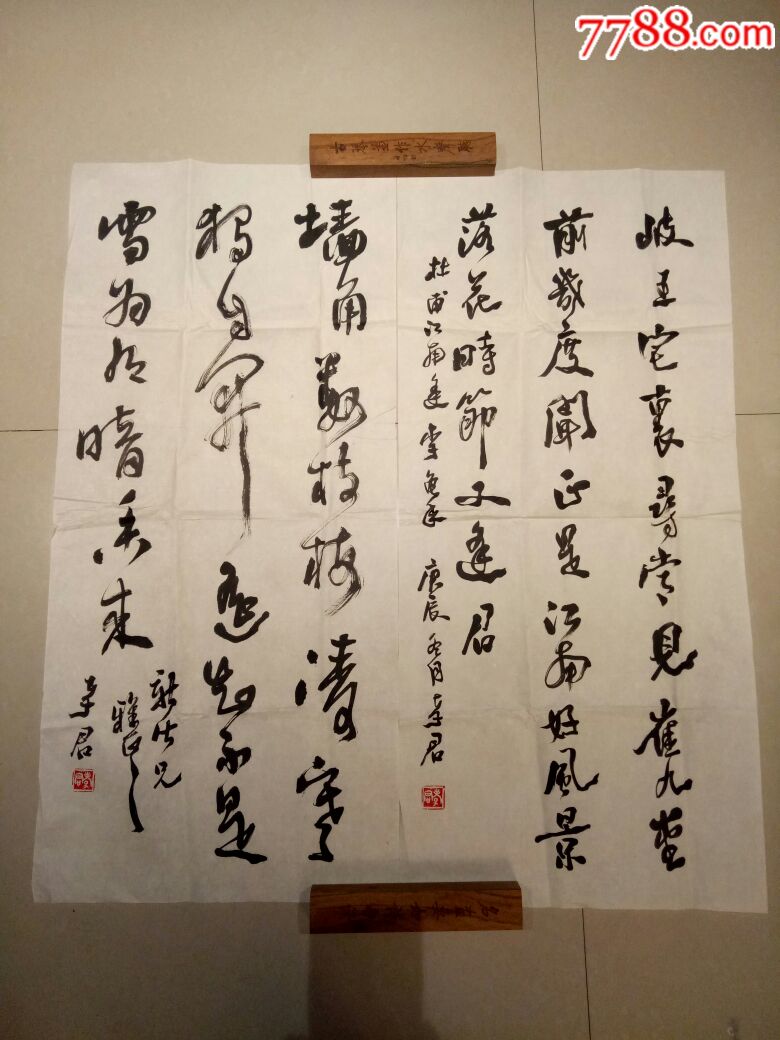 7788.com
岐王宅裏尋常見崔九堂
前幾度聞正是江南好風景
落花時節又逢君
杜甫江南逢李龟年 庚辰冬月
墙角數枝梅凌寒
獨自開遥知不是
雪为有暗香来
兄
雅正